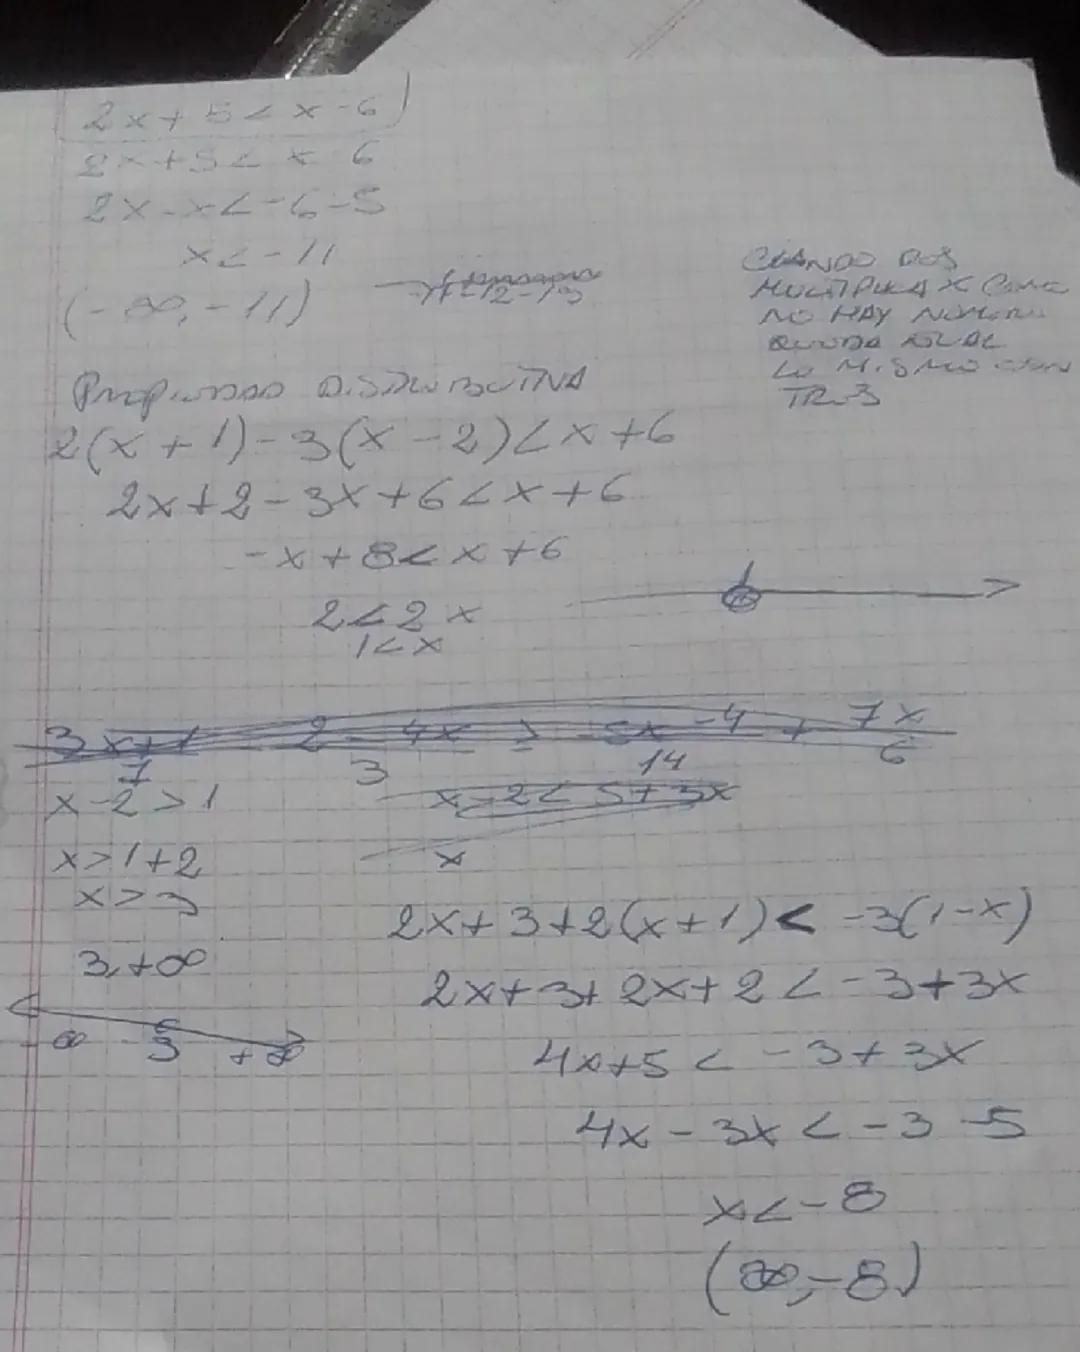 2x + 5 < x - 6
2x + 5 < x - 6
2x - x < -6 - 5
x < - 11
(- ∞, - 11)
CUANDO DOS
MULTIPLICA X COMO
NO HAY NUMERO
QUEDA IGUAL
LO MISMO CON
TRES
PROPIEDAD DISTRIBUTIVA
2(x + 1) - 3(x - 2) < x + 6
2x + 2 - 3x + 6 < x + 6
- x + 8 < x + 6
2 < 2x
1 < x
1
3x+1 2 - 4x ≥ -5x -4 + 7x
7 3 14 6
x - 2 > 1
x - 2 < 5 + 3x
x > 1 + 2
x
x > 3
3, +∞
-∞ 3 +∞
2x + 3 + 2(x + 1) < -3(1 - x)
2x + 3 + 2x + 2 < - 3 + 3x
4x + 5 < - 3 + 3x
4x - 3x < - 3 - 5
x < - 8
(∞, - 8)